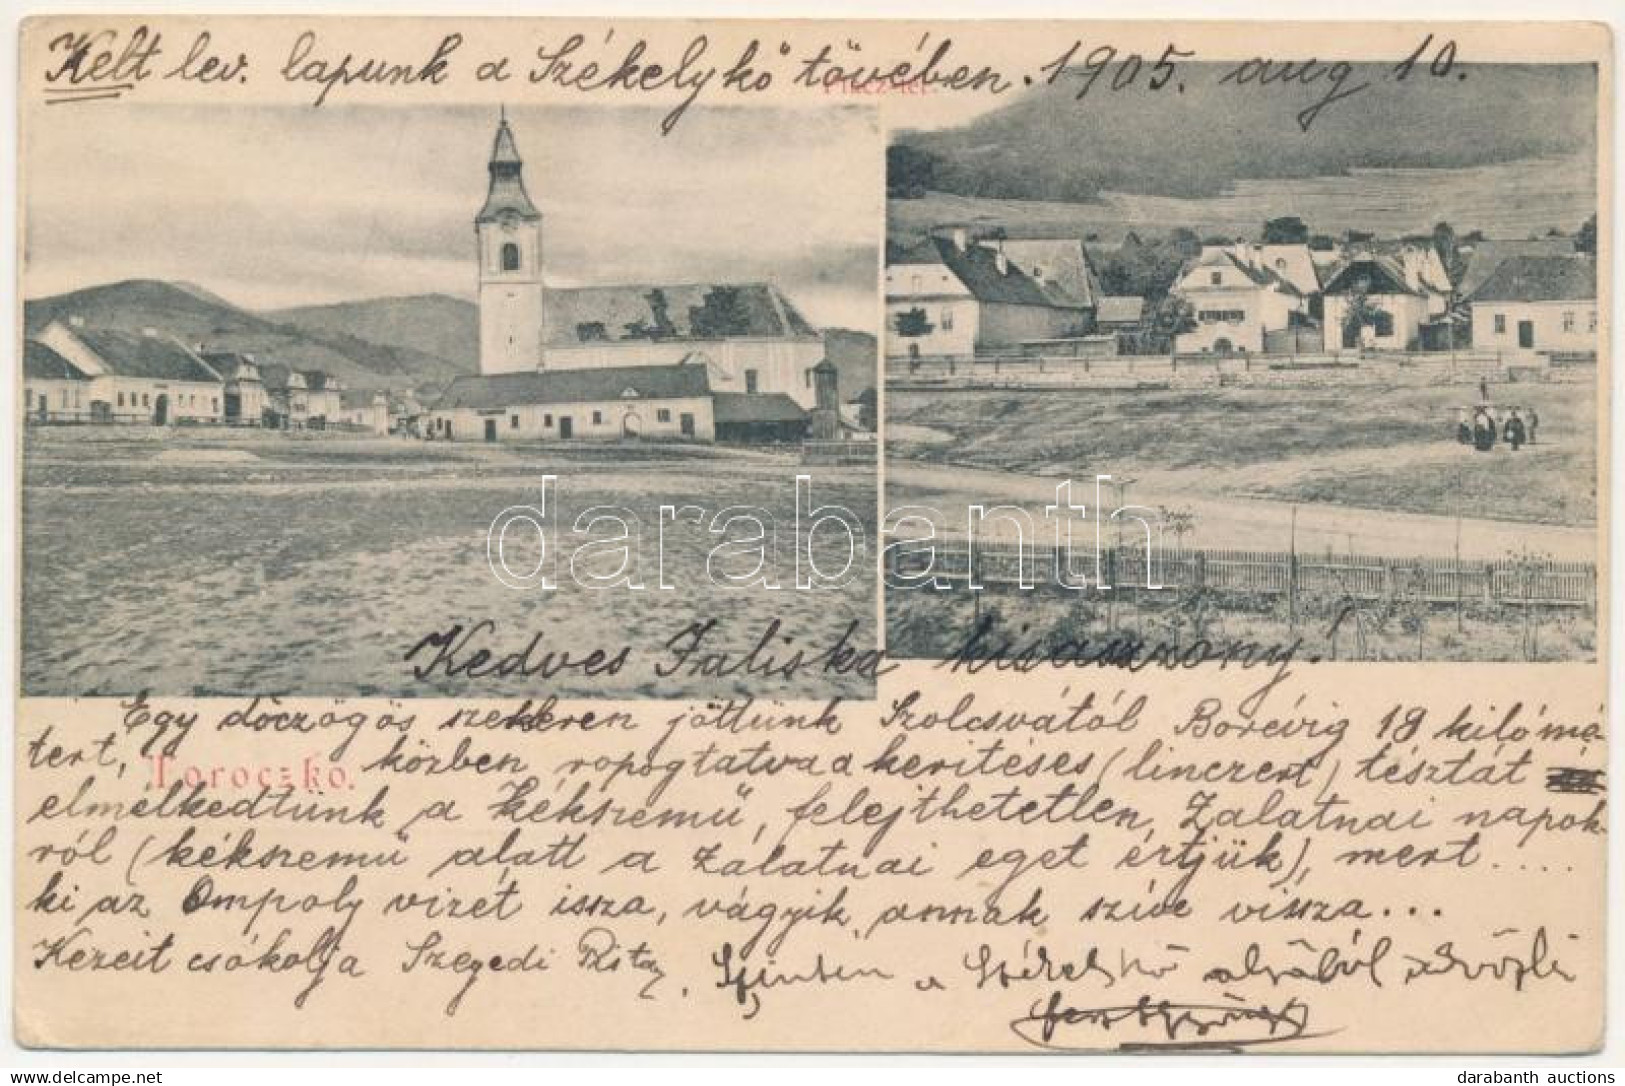 Kelt lev. lapunk a Székelykő tövében. 1905. aug 10.
darabanth
Kedves Juliska kisasszony!
Egy döczögős szekeren jöttünk Szolcsvától Borévig 18 kilómé-
tert, közben ropogtatva a kerítéses (linczert) tésztát
Toroczkó.
elmélkedtünk a kékszemű, felejthetetlen, Zalatnai napok-
ról (kékszemű alatt a zalatnai eget értjük), mert....
ki az Ompoly vizét issza, vágyik annak szíve vissza...
Kezeit csókolja Szegedi Pista, Szintén a Székelykő aljából üdvözli
darabanth auctions